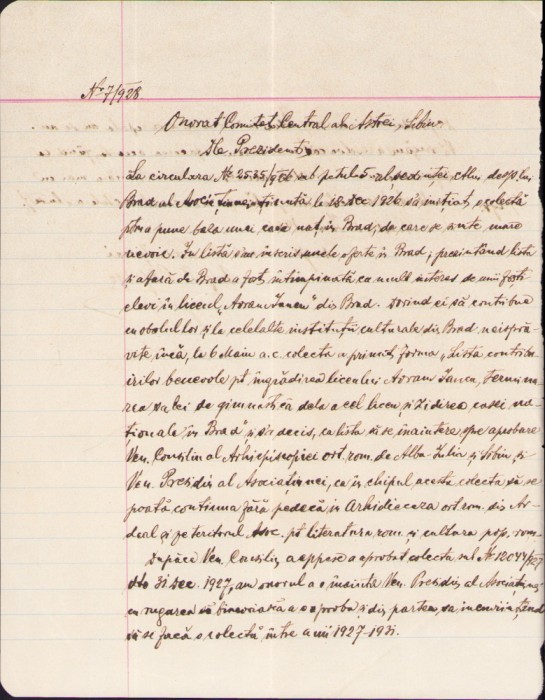 No 7/928.
Onorat Comitet Central al Astrei, Sibiu
Ilu. Prezident,
La circulara No 2535/926 sub petulă al ședenței Com. desp. lui
Brad al Asociațiunii, ținută la 18 Dec 1926 să inițiat, o colectă
p. a pune baza unei case naț. în Brad, de care se simte mare
nevoie. În listă s'au inscris unele oferte în Brad; prezintând lista
și afară de Brad a fost intimpinată cu mult interes de unii foști
elevi în liceul, "Avram Iancu" din Brad. dorind ei să contribue
cu obolul lor și la celelalte instituții culturale din Brad, neisprà-
vite, încă, la 6 Main a.c. colecta a primit forma „Lista contribu-
irilor benevole pt îngrădirea liceului Avram Iancu, termina-
rea salei de gimnastică dela acel liceu și Zidirea casei na-
ționale în Brad" și s'a decis, ca lista să se înainteze spre aprobare
Ven. Consiliu al Arhiepiscopiei ort. rom. de Alba-Iulia și Sibiu și
Ven. Presidiu al Asociațiunei, ca în chipul acesta colecta să se
poată continua fără pedecă în Arhidieceza ort. rom. din Ar-
deal și pe teritorul Asoc. pt literatura rom. și cultura pop. rom.
Dupăce Ven. Consiliu a aprobat colecta sub No 12044/927
dto 31 Dec. 1927, am onorul a o înainta Ven. Presidiu al Asociațiunii
cu rugarea să binevoiască a o aproba și din partea-sa
să se facă o colectă între anii 1927-1931.